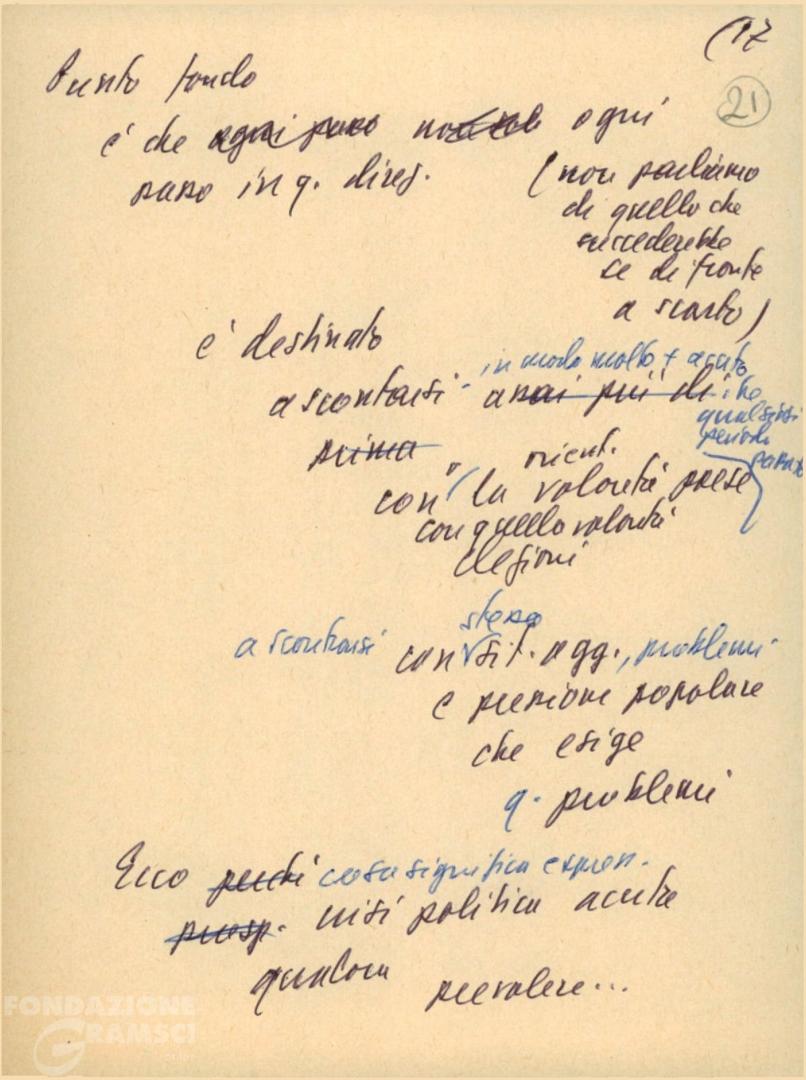 (17
21
Punto fondo
è che ogni passo non ogni
passo in q. direz.
(non parliamo
di quello che
succederebbe
se di fronte
a scarto)
è destinato
a scontrarsi in modo molto + acuto
assai più di che
qualsiasi
periodo
passato
prima
orient.
con la volontà prese
con quella volontà
elezioni
stessa
a scontrarsi con sit. ogg., problemi
e pressione popolare
che esige
q. problemi
Ecco perché cosa significa espress.
prosp. crisi politica acuta
qualora prevalere...
FONDAZIONE
GRAMSCI